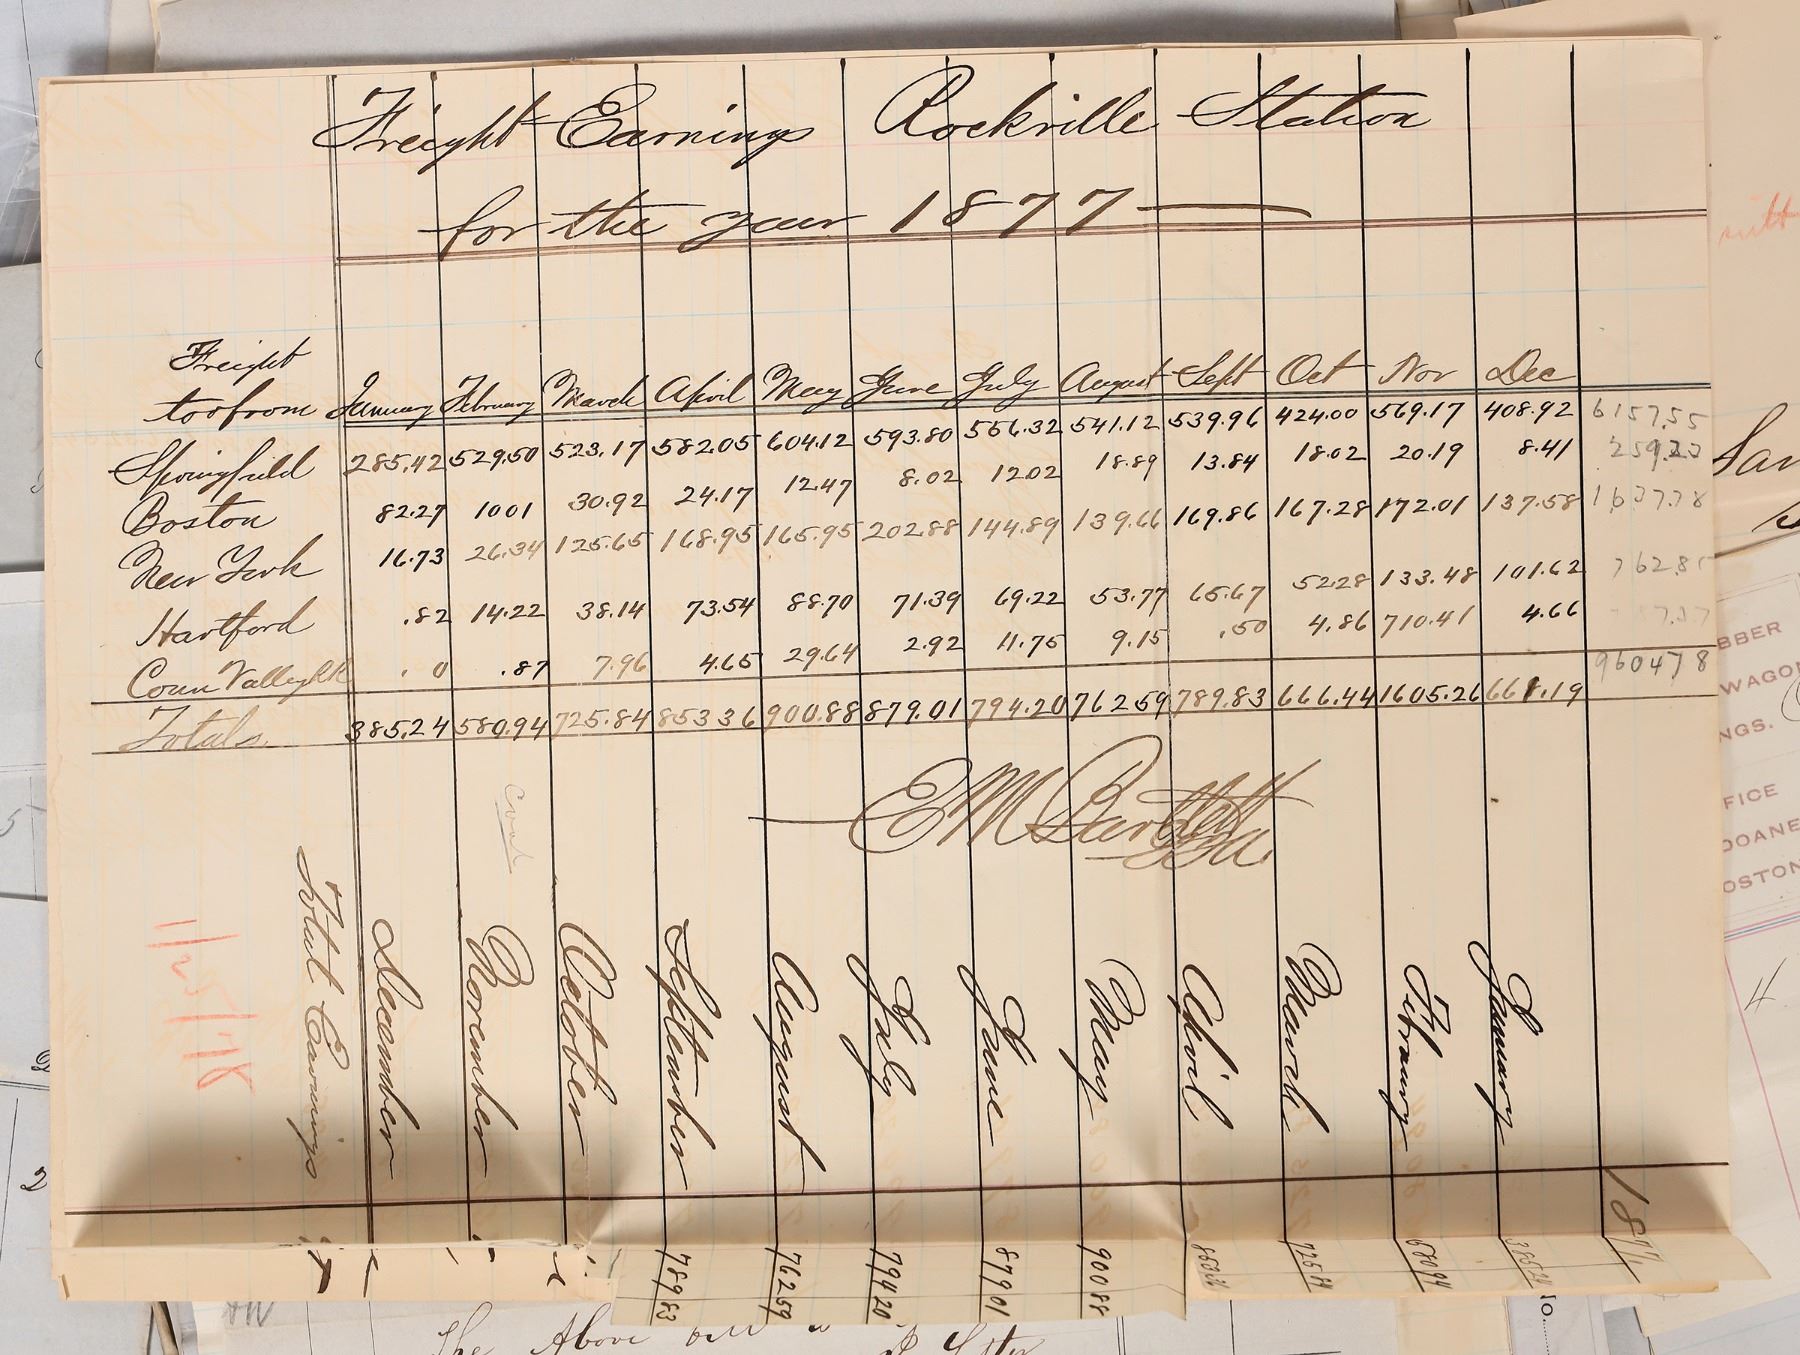 Freight Earnings Rockville Station
for the year 1877
Freight
to or from January February March April May June July August Sept Oct Nov Dec
Springfield 285.42 529.50 523.17 582.05 604.12 593.80 556.32 541.12 539.96 424.00 569.17 408.92 6157.55
Boston 82.27 1001 30.92 24.17 12.47 8.02 12.02 18.89 13.84 18.02 20.19 8.41 259.23
New York 16.73 26.34 125.65 168.95 165.95 202.88 144.89 139.66 169.86 167.28 172.01 137.58 1637.78
Hartford .82 14.22 38.14 73.54 88.70 71.39 69.22 53.77 65.67 52.28 133.48 101.62 762.85
Conn Valley RR . 0 .87 7.96 4.65 29.64 2.92 11.75 9.15 .50 4.86 710.41 4.66
960478
Totals 385.24 580.94 725.84 853 36 900.88 879.01 794.20 762 59 789.83 666.44 1605.26 661.19
E M Bartlett
Total Earnings
December
November
October
September 789 83
August 762 59
July 794 20
June 879 01
May 900 88
April
March 725 84
February 580 94
January 385 24
1877
1/25/78
The Above
BBER
WAGO
NGS.
FICE
DOANE
OSTON
4
2
2